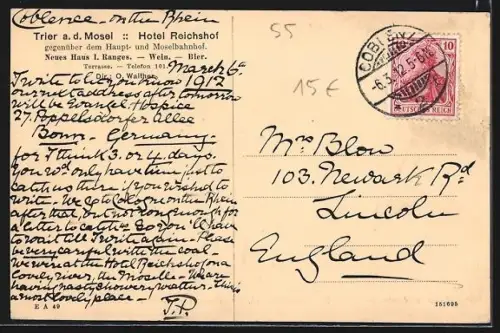 Coblence - on the Rhein
Trier a.d. Mosel :: Hotel Reichshof
gegenüber dem Haupt- und Moselbahnhof.
Neues Haus I. Ranges. — Wein. — Bier.
Terrasse. — Telefon 161.
Dir.: O. Walther.
March 6th
I write to tell you now 1912
our next address after tomorrow
will be Evangel Hospice
27. Poppelsdorfer Allee
Bonn - Germany -
for I think 3. or 4. days.
You wd only have time just to
catch us there if you wished to
write. We go to Cologne on the Rhein
after that, but not long enough for
a letter to catch us so you'll have
to wait till I write again. Please
be very careful with the coal.
We were at the Hotel Reichshof on a
lovely river, the Moselle - We are
having nasty showery weather. This is
a most lovely place -
J.P.
E A 49
55
15€
COBLENZ
-6.3.12.5-6N
10
DEUTSCHES REICH
Mrs Blow
103. Newark Rd
Lincoln
England
151695